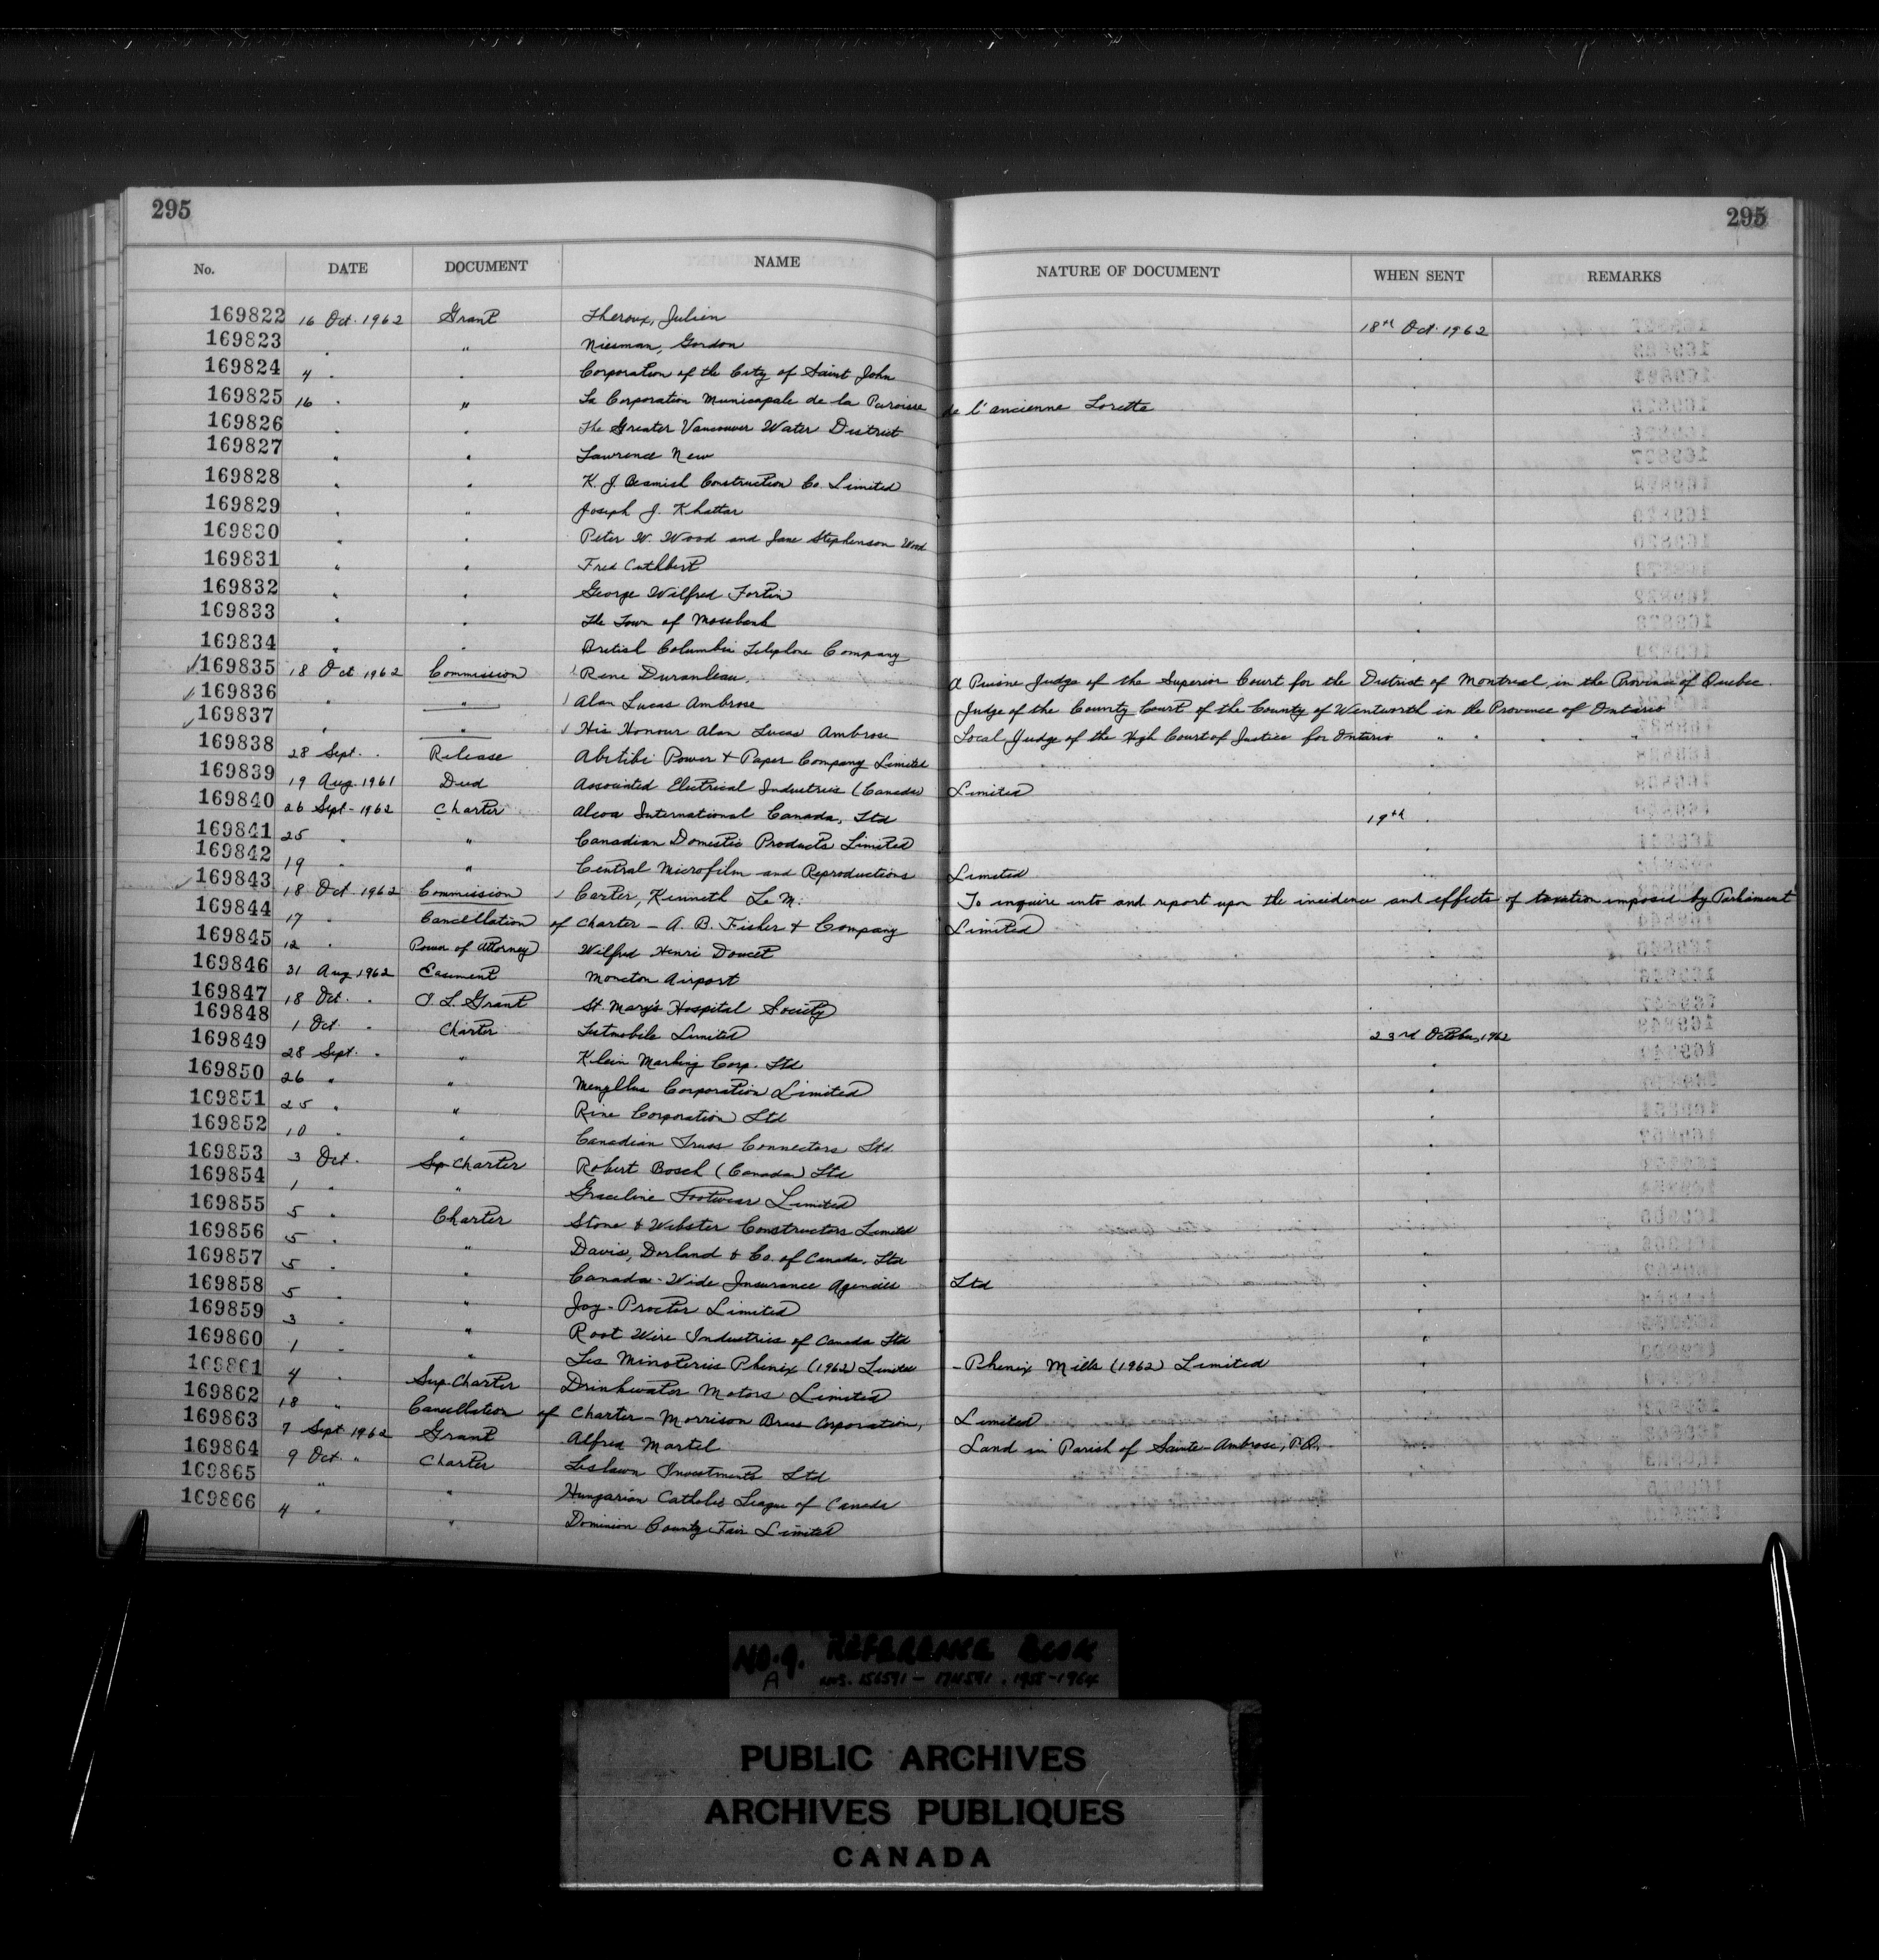 295 295
No. DATE DOCUMENT NAME NATURE OF DOCUMENT WHEN SENT REMARKS
169822 16 Oct. 1962 Grant Theroux, Julien 18th Oct. 1962
169823 " " Niesman, Gordon "
169824 4 " " Corporation of the City of Saint John "
169825 16 " " La Corporation Municapale de la Paroisse de l'ancienne Lorette "
169826 " " The Greater Vancouver Water District "
169827 " " Lawrence New "
169828 " " K. J. Beamish Construction Co. Limited "
169829 " " Joseph J. Khattar "
169830 " " Peter W. Wood and Jane Stephenson Wood "
169831 " " Fred Cuthbert "
169832 " " George Wilfred Fortin "
169833 " " The Town of Mossbank "
169834 " " British Columbia Telephone Company "
169835 18 Oct 1962 Commission Rene Duranleau, A Puisne Judge of the Superior Court for the District of Montreal, in the Province of Quebec.
169836 " " Alan Lucas Ambrose Judge of the County Court of the County of Wentworth in the Province of Ontario
169837 " " His Honour Alan Lucas Ambrose Local Judge of the High Court of Justice for Ontario " " " " "
169838 28 Sept. " Release Abitibi Power & Paper Company Limited "
169839 19 Aug. 1961 Deed Associated Electrical Industries (Canada) Limited "
169840 26 Sept- 1962 Charter Alcoa International Canada, Ltd 19th "
169841 25 " " Canadian Domestic Products Limited "
169842 19 " " Central Microfilm and Reproductions Limited "
169843 18 Oct 1962 Commission Carter, Kenneth Le M. To inquire into and report upon the incidence and effects of taxation imposed by Parliament
169844 17 " Cancellation of Charter - A. B. Fisher & Company Limited "
169845 12 " Power of Attorney Wilfred Henri Doucet "
169846 31 Aug 1962 Easement Moncton Airport "
169847 18 Oct. " O. L. Grant St. Mary's Hospital Society "
169848 1 Oct. " Charter Testmobile Limited 23rd October, 1962
169849 28 Sept. " " Klein Marking Corp. Ltd "
169850 26 " " Corporation Limited "
169851 25 " " Rine Corporation Ltd "
169852 10 " " Canadian Truss Connectors Ltd. "
169853 3 Oct. Sp Charter Robert Bosch (Canada) Ltd "
169854 1 " " Graceline Footwear Limited "
169855 5 " Charter Stone & Webster Constructors Limited
169856 5 " " Davis, Dorland & Co. of Canada, Ltd "
169857 5 " " Canada-Wide Insurance Agencies Ltd "
169858 5 " " Joy-Procter Limited "
169859 3 " " Root Wire Industries of Canada Ltd "
169860 1 " " Les Minoteries Phenix (1962) Limited - Phenix Mills (1962) Limited "
169861 4 " Sup Charter Drinkwater Motors Limited "
169862 18 " Cancellation of Charter - Morrison Brass Corporation, Limited
169863 7 Sept 1962 Grant Alfred Martel Land in Parish of Sainte-Ambrose, P.Q.
169864 9 Oct. " Charter Leslawn Investments Ltd
169865 " " Hungarian Catholic League of Canada
169866 4 " " Dominion County Fair Limited
NO. 9. REFERENCE BOOK
A nos. 156591 - 174591. 1955-1964
PUBLIC ARCHIVES
ARCHIVES PUBLIQUES
CANADA